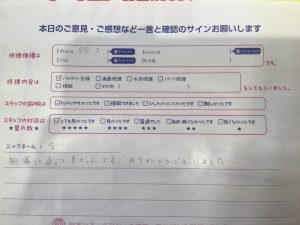 本日のご意見・ご感想など一言と確認のサインお願いします
修理機種は
iPhone SE 2
Android
iPad
その他
です。
修理内容は
バッテリー交換 画面修理 水没修理 パーツ修理
相談 その他
をしてもらいました。
スタッフの説明は
わかりやすかったです 理解できました 少しわかりにくかったです 難しかったです
スタッフの対応は
★星の数★
とても良かったです 良かったです 普通でした あまり良くなかったです 良くなかったです
★★★★★ ★★★★ ★★★ ★★ ★
ニックネーム: S
無事に直って良かったです。ありがとうございました